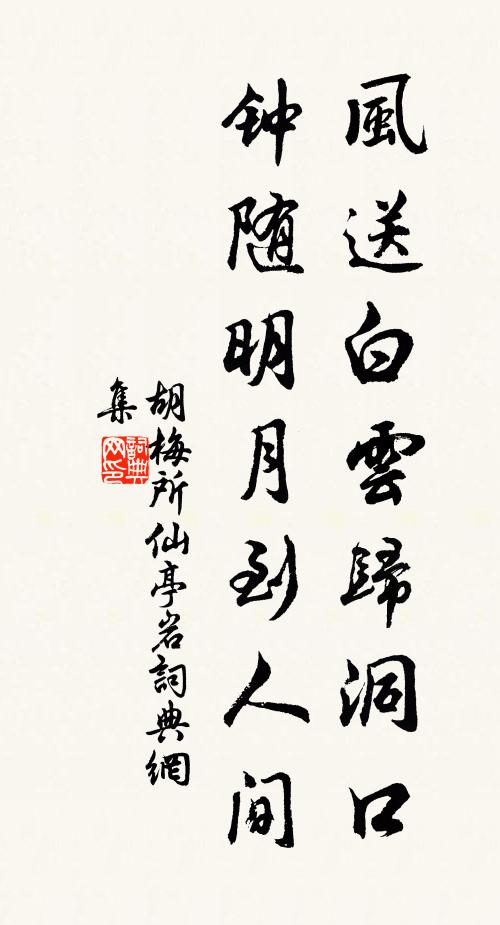 風送白雲歸洞口
钟随明月到人间
胡梅所仙亭岩詞典網
集
詞典网印